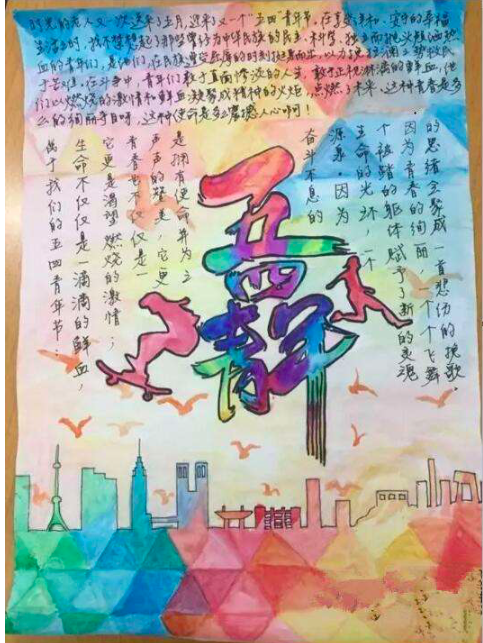 时光的老人又一次迎来了五月,迎来了又一个"五四"青年节。在享受和平、安宁的幸福
生活之时,我不禁想起了那些曾经为中华民族的民主、科学、独立而抛头颅洒热
血的青年们,是他们,在民族遭受屈辱的时刻挺身而出,以力挽狂澜之势救民
于苦难。在斗争中,青年们敢于直面惨淡的人生,敢于正视淋漓的鲜血,他
们以燃烧的激情和鲜血凝聚成精神的火炬,点燃了未来。这种青春是多
么的绚丽夺目呀,这种使命是多么震撼人心啊!
五四
青年
的思绪全聚成一首悲伤的挽歌.
.因为青春的绚丽,一个个飞舞
个被赌的躯体赋予了新的灵魂
生命的光环,一个
源泉.因为
奋斗不息的
是拥有使命并为之
声声的赞美.它更
青春也不仅仅是一
它更是渴望燃烧的激情;
生命不仅仅是一滴滴的鲜血,
属于我们的五四青年节: